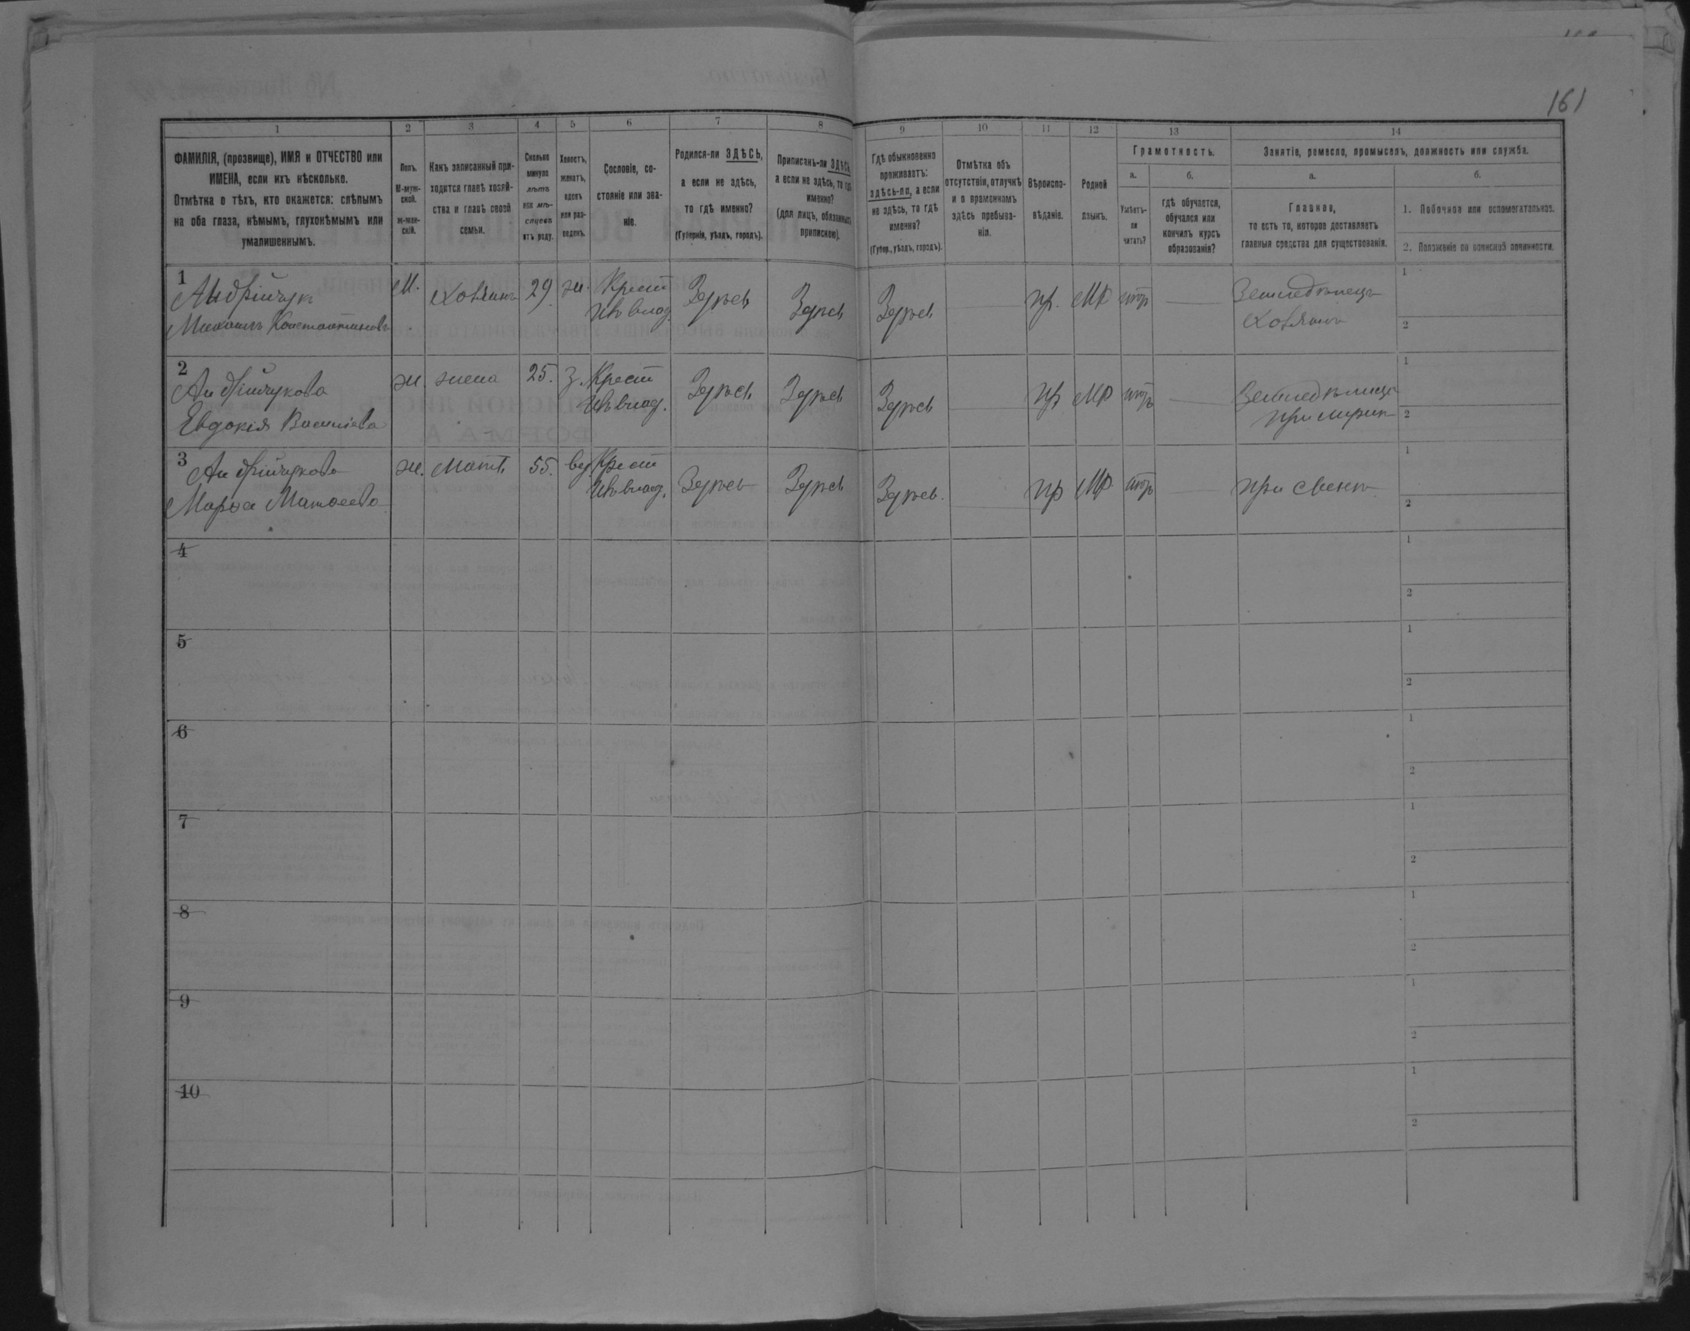 161
1 2 3 4 5 6 7 8 9 10 11 12 13 14
ФАМИЛІЯ, (прозвище), ИМЯ и ОТЧЕСТВО или
ИМЕНА, если ихъ нѣсколько.
Отмѣтка о тѣхъ, кто окажется: слѣпымъ
на оба глаза, нѣмымъ, глухонѣмымъ или
умалишеннымъ.
Полъ.
М-муж-
ской.
ж-жен-
скій.
Какъ записанный при-
ходится главѣ хозяй-
ства и главѣ своей
семьи.
Сколько
минуло
лѣтъ
или мѣ-
сяцевъ
отъ роду.
Холостъ,
женатъ,
вдовъ
или раз-
веденъ.
Сословіе, со-
стояніе или зва-
ніе.
Родился-ли ЗДѢСЬ,
а если не здѣсь,
то гдѣ именно?
(Губернія, уѣздъ, городъ).
Приписанъ-ли ЗДѢСЬ,
а если не здѣсь, то гдѣ
именно?
(для лицъ, обязанныхъ
припискою).
Гдѣ обыкновенно
проживаетъ:
здѣсь-ли, а если
не здѣсь, то гдѣ
именно?
(Губер., уѣздъ, городъ).
Отмѣтка объ
отсутствіи, отлучкѣ
и о временномъ
здѣсь пребыва-
ніи.
Вѣроиспо-
вѣданіе.
Родной
языкъ.
Грамотность.
а.
Умѣетъ-
ли
читать?
б.
гдѣ обучается,
обучался или
кончилъ курсъ
образованія?
Занятіе, ремесло, промыселъ, должность или служба.
а.
Главное,
то есть то, которое доставляетъ
главныя средства для существованія.
б.
1. Побочное или вспомогательное.
2. Положеніе по воинской повинности.
1
Андрійчукъ
Михаилъ Константиновъ
М. Хозяинъ 29 ж. Крест
изъ влад. Здѣсь Здѣсь Здѣсь пр. МР нтъ
Земледѣлецъ
Хозяинъ
1
2
2
Андрійчукова
Евдокія
ж. жена 25. з. Крест
Изъ влад. Здѣсь Здѣсь Здѣсь пр МР нтъ
1
2
3
Андрійчукова
Марѳа Матѳеева
ж. Мать 55. вд. Крест
Изъ влад. Здѣсь Здѣсь Здѣсь пр МР нтъ
при сынѣ
1
2
4
1
2
5
1
2
6
1
2
7
1
2
8
1
2
9
1
2
10
1
2